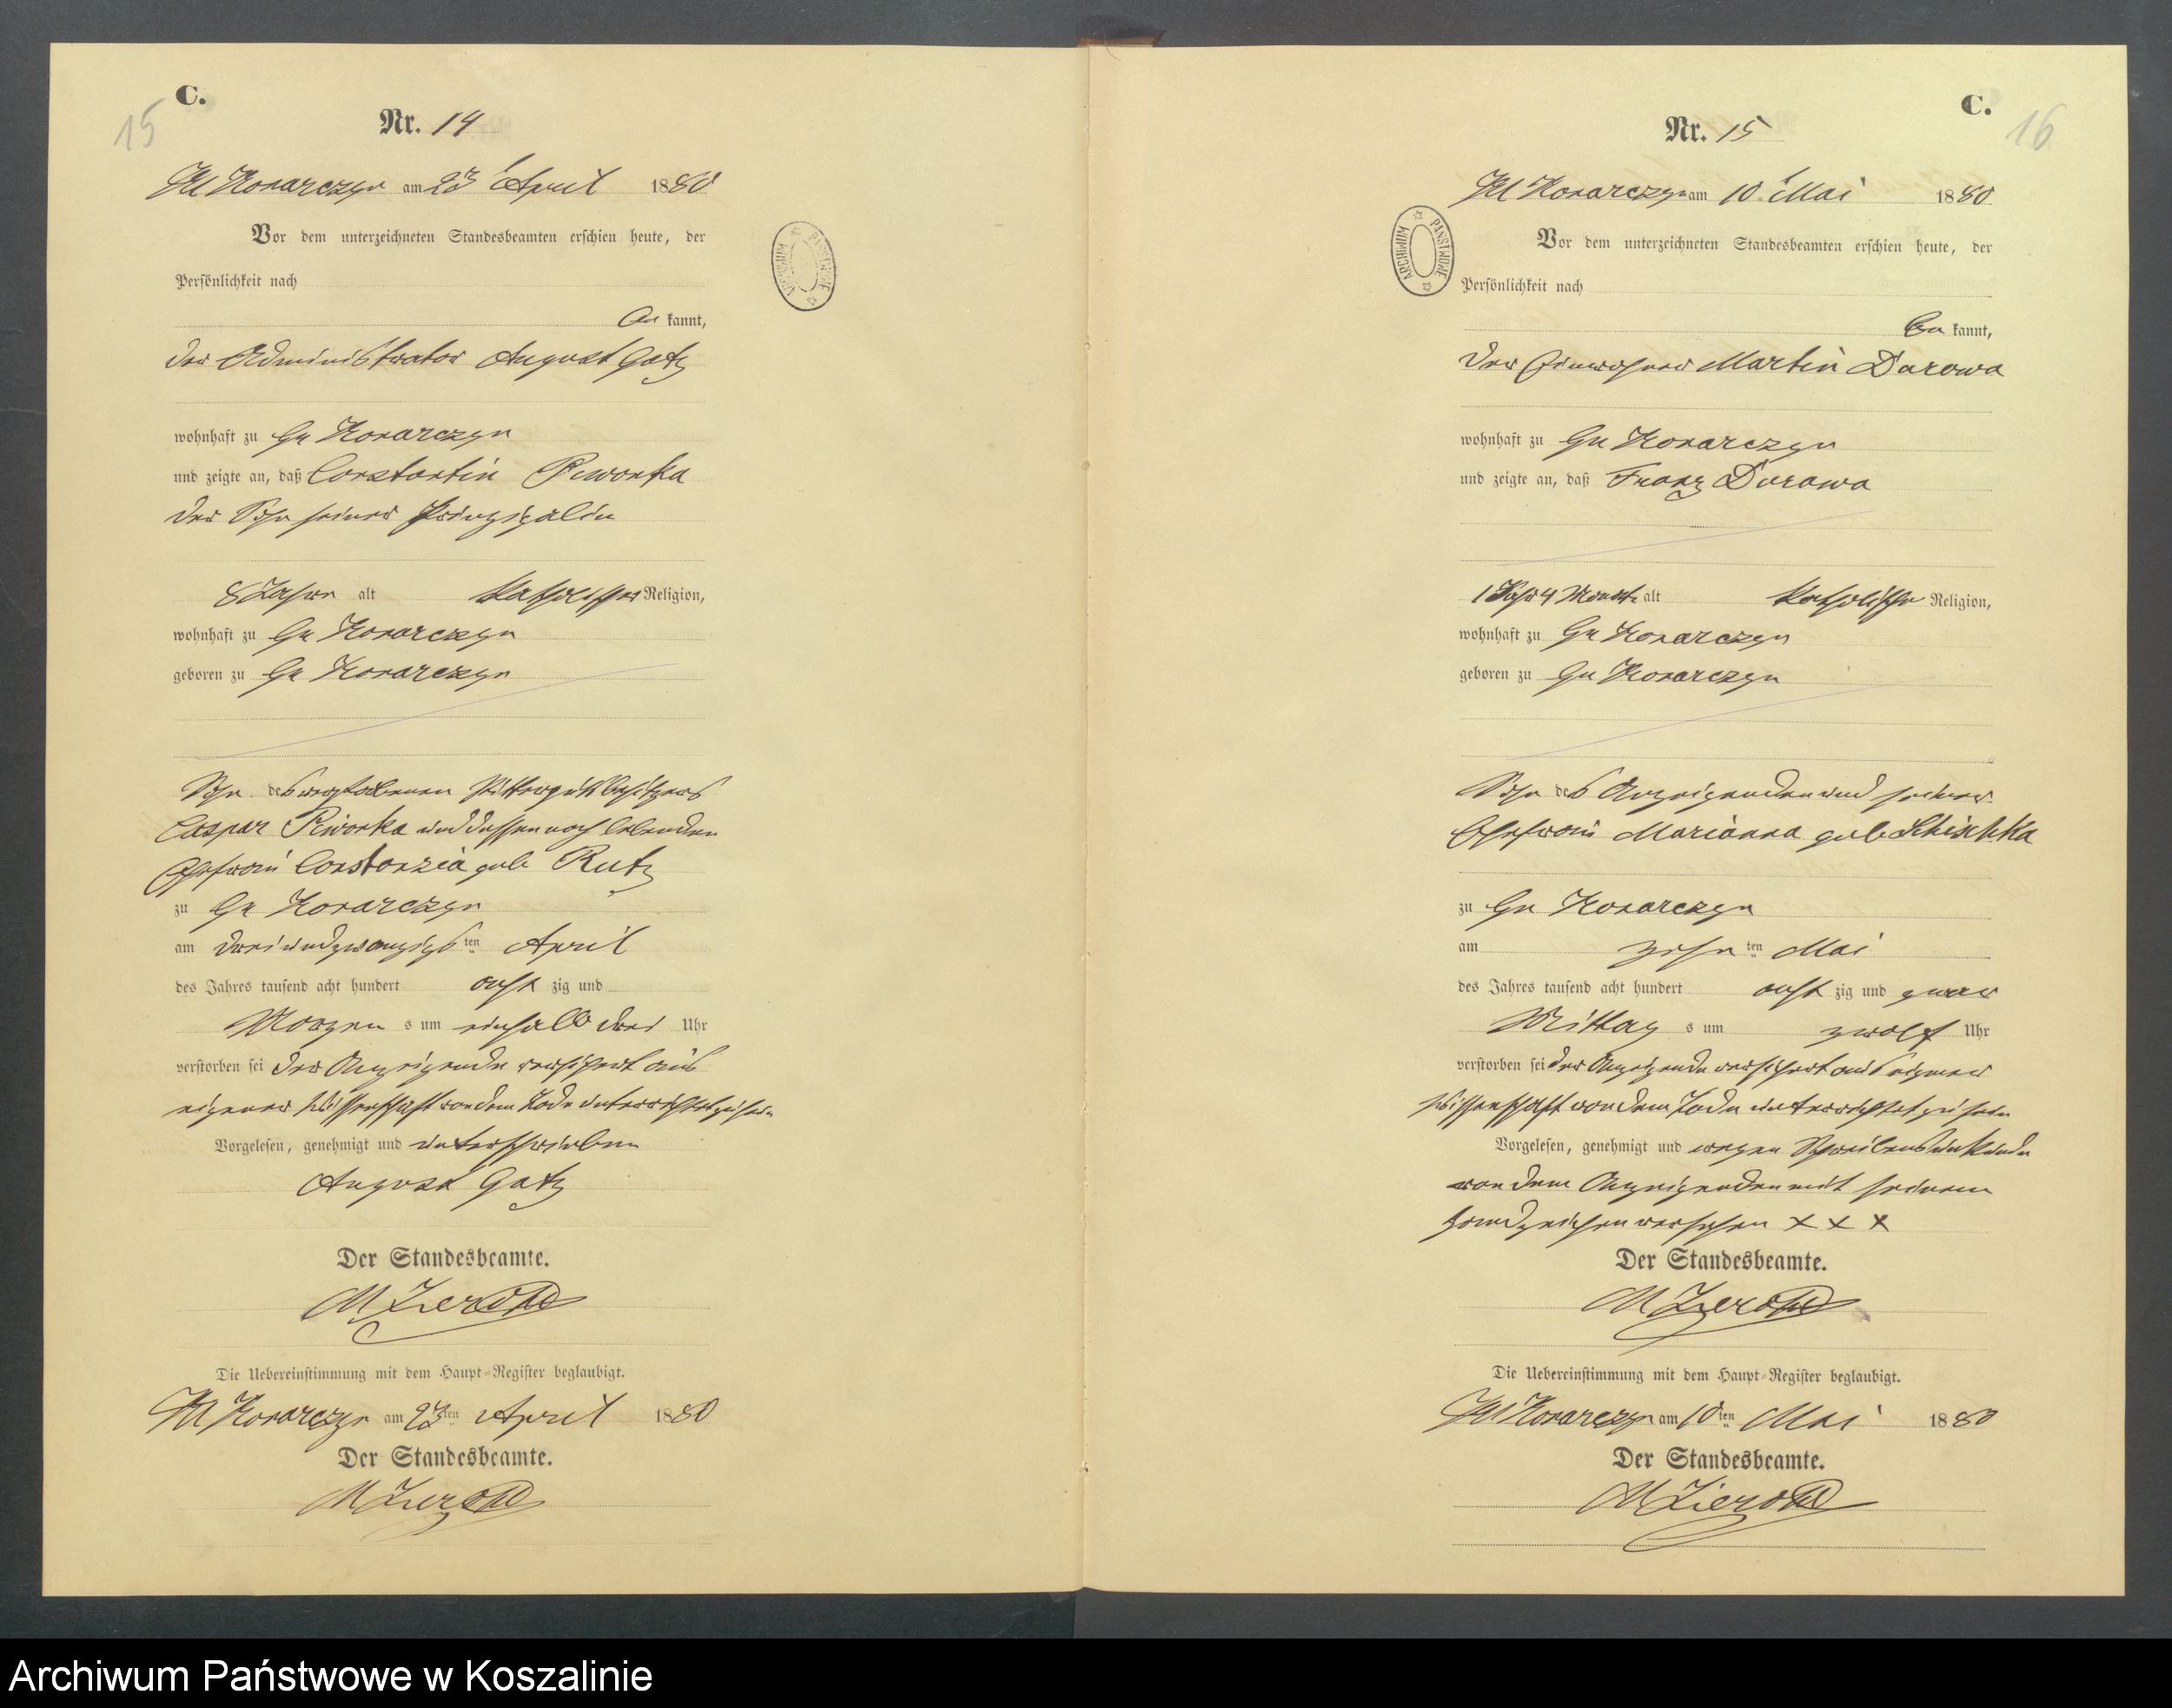 15
C.
Nr. 14
Kl Konarczyn am 23 April 1880
Vor dem unterzeichneten Standesbeamten erschien heute, der
Persönlichkeit nach
kannt,
der Administrator August Gatz
wohnhaft zu Gr Konarczyn
und zeigte an, daß Constantin
der Sohn seiner Prinzipalin
8 Jahre alt katholischer Religion,
wohnhaft zu Gr Konarczyn
geboren zu Gr Konarczyn
Sohn des verstorbenen Rittergutsbesitzers
Caspar und dessen noch lebenden
Ehefrau Constanzia geb Rutz
zu Gr Konarczyn
am dreiundzwanzigsten April
des Jahres tausend acht hundert acht zig und
Morgen s um einhalb drei Uhr
verstorben sei der Anzeigende versichert aus
eigener Wissenschaft von dem Tode unterrichtet zu sein
Vorgelesen, genehmigt und unterschrieben
August Gatz
Der Standesbeamte.
Die Uebereinstimmung mit dem Haupt-Register beglaubigt.
Kl Konarczyn am 23ten April 1880
Der Standesbeamte.
ARCHIWUM PAŃSTWOWE
C.
16
Nr. 15
Kl Konarczyn am 10 Mai 1880
Vor dem unterzeichneten Standesbeamten erschien heute, der
Persönlichkeit nach
kannt,
der Einwohner Martin Darowa
wohnhaft zu Gr Konarczyn
und zeigte an, daß Franz Darowa
1 Jahr 4 Monate alt katholischer Religion,
wohnhaft zu Gr Konarczyn
geboren zu Gr Konarczyn
Sohn des Anzeigenden und seiner
Ehefrau Marianna geb Schischka
zu Gr Konarczyn
am zehnten Mai
des Jahres tausend acht hundert acht zig und zwar
Mittag s um zwölf Uhr
verstorben sei der Anzeigende versichert aus eigener
Wissenschaft von dem Tode unterrichtet zu sein
Vorgelesen, genehmigt und wegen Schreibensunkunde
von dem Anzeigenden mit seinem
Handzeichen versehen X X X
Der Standesbeamte.
Die Uebereinstimmung mit dem Haupt-Register beglaubigt.
Kl Konarczyn am 10ten Mai 1880
Der Standesbeamte.
ARCHIWUM PAŃSTWOWE
Archiwum Państwowe w Koszalinie